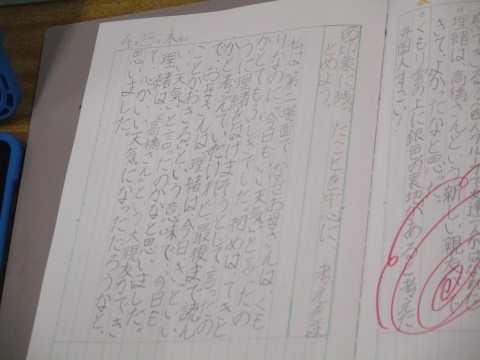 理緒は、高橋さんという新しい親友がで
きて、よかったなと思った。
。くもり雲の上に銀色の裏地があると考えた
外国人すごい！
印象に残ったことを中心に、考えをま
とめよう。
私は、第二場面で、なぜお母さんは、くも
りなのに、今日も「いい天気」と言ったの
かとてもふしぎでした。初めは、てきと
うに理緒をはげまそうとして言ったの
かと考えていたけれど、最後まで読ん
で、お母さんは、理緒は今日、きっといい
ことがおきる。という意味で、今日も
「いい天気」と言ったのかなと思いました。
理緒は、「高橋さん」という大親友ができ
て、心がいい天気になっただろうなと、
思いました。
4/23 木